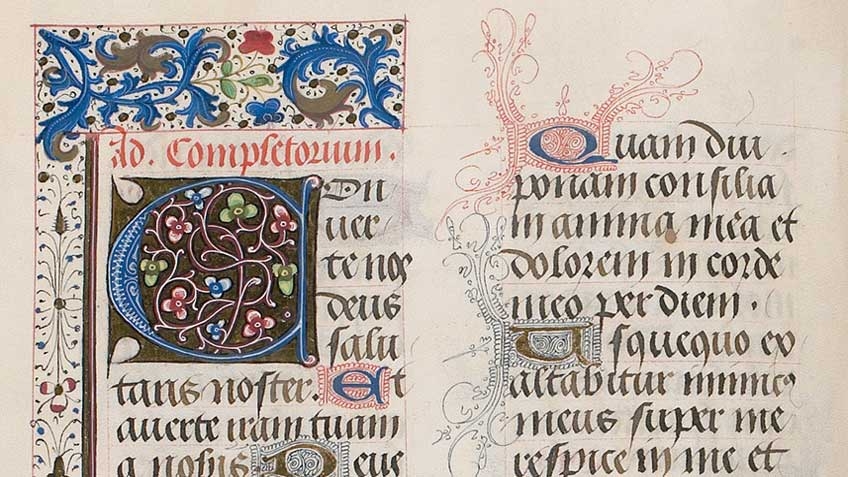 Ad. Completorium.
Con
uer
te nos
deus
salu
taris noster. Et
auerte iram tuam
a nobis Deus
Quam diu
ponam consilia
in anima mea et
dolorem in corde
meo per diem.
Usquequo ex
altabitur inimicꝰ
meus super me
respice in me et